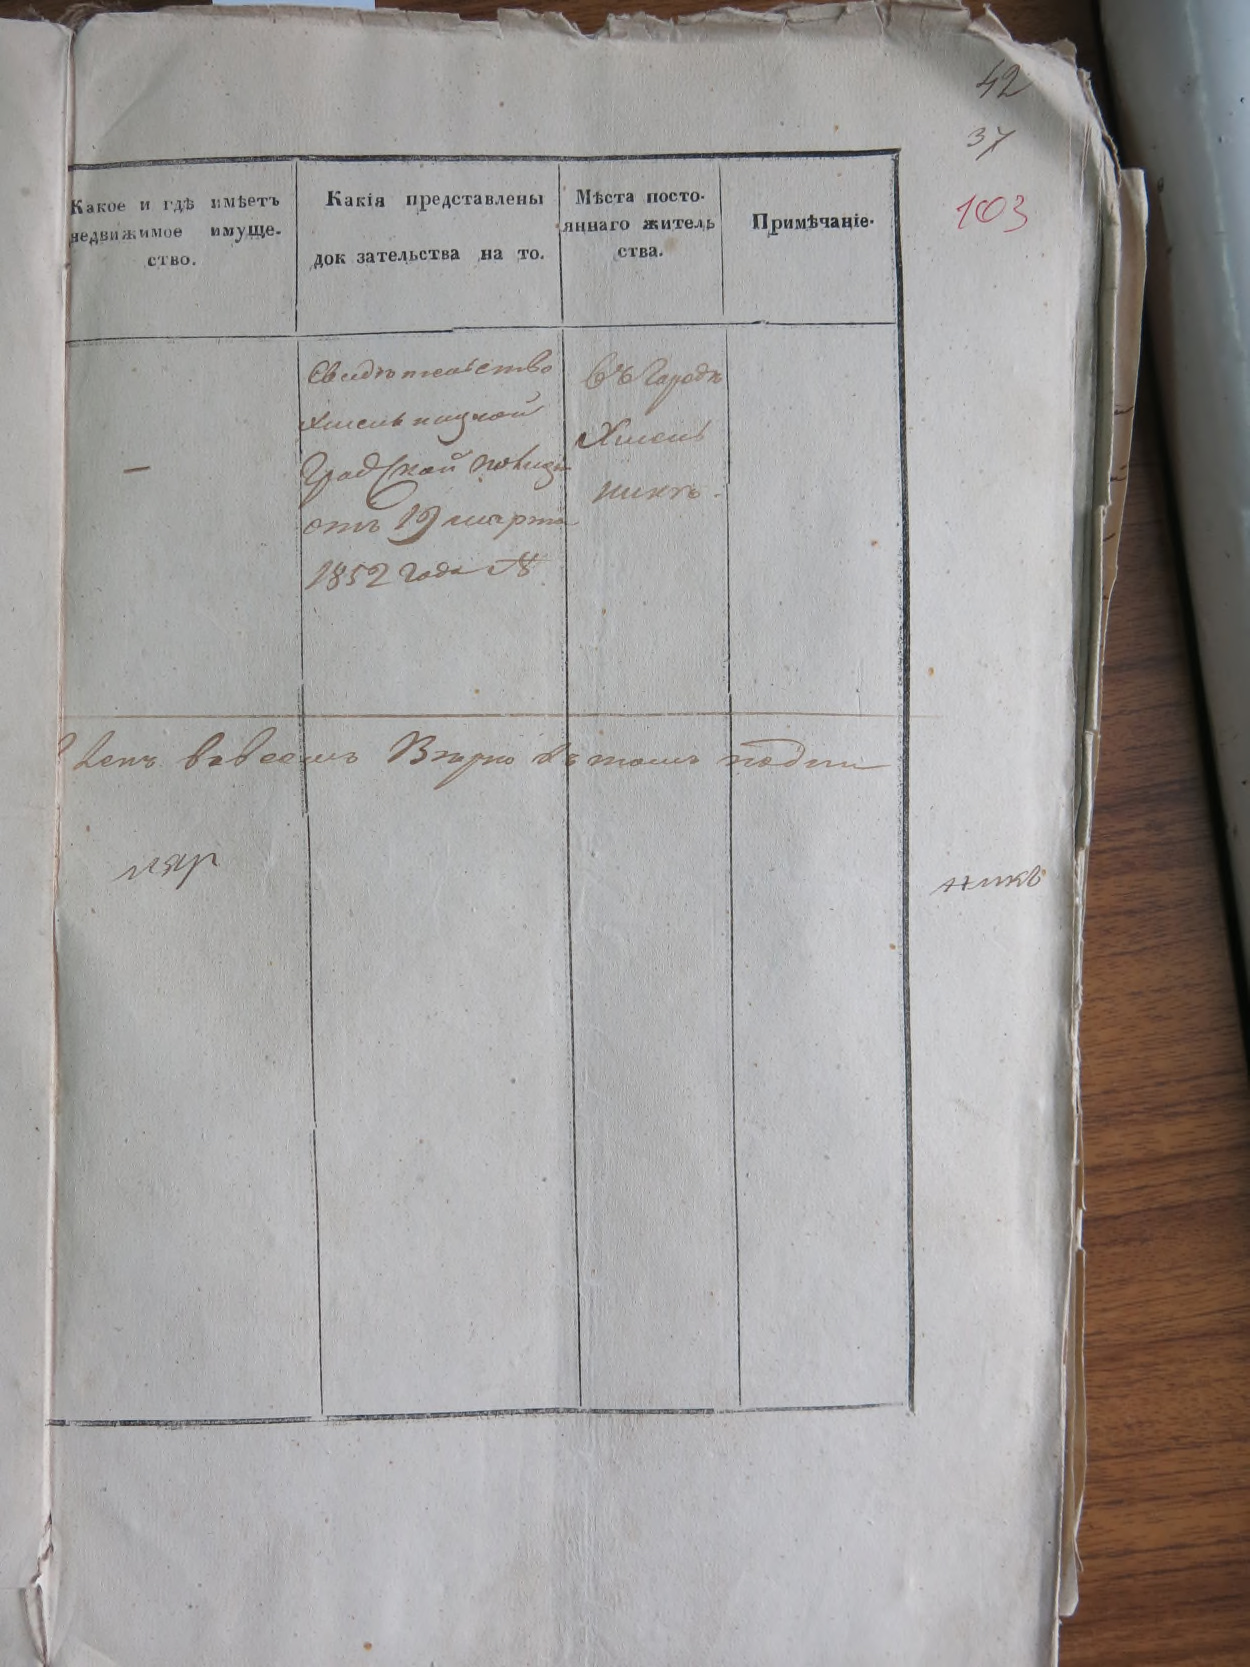 42
37
103
Какое и гдѣ имѣетъ
недвижимое имуще-
ство.
Какія представлены
док зательства на то.
Мѣста посто-
яннаго житель
ства.
Примѣчаніе.
Свидѣтельство
Хмельницкой
Градской
отъ 19 марта
1852 года №
—
Въ Городѣ
Хмель
никѣ.
Вѣрно въ томъ